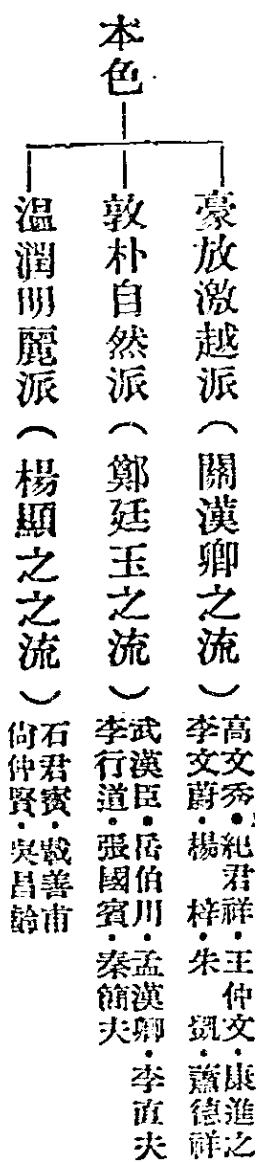 本色
豪放激越派(關漢卿之流)
高文秀•紀君祥•王仲文•康進之
李文蔚•楊梓•朱凱•蕭德祥
敦朴自然派(鄭廷玉之流)
武漢臣•岳伯川•孟漢卿•李直夫
李行道•張國賓•秦簡夫
溫潤明麗派(楊顯之之流)
石君寶•戴善甫
尙仲賢•吳昌齡